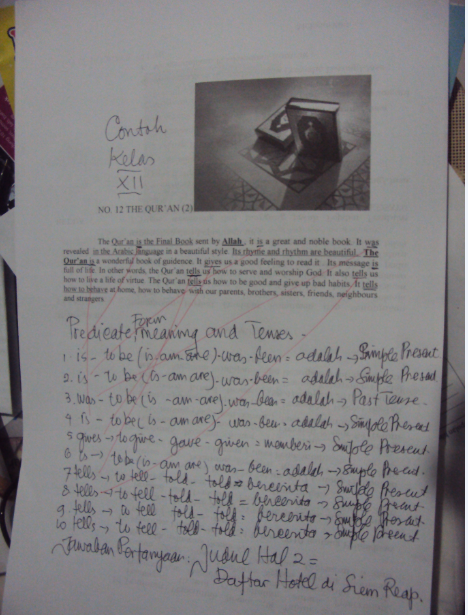 Contoh
Kelas
XII
NO. 12 THE QUR'AN (2)
The Qur'an is the Final Book sent by Allah, it is a great and noble book. It was
revealed in the Arabic language in a beautiful style. Its rhyme and rhythm are beautiful. The
Qur'an is a wonderful book of guidence. It gives us a good feeling to read it. Its message is
full of life. In other words, the Qur'an tells us how to serve and worship God. It also tells us
how to live a life of virtue. The Qur'an tells us how to be good and give up bad habits. It tells
how to behave at home, how to behave with our parents, brothers, sisters, friends, neighbours
and strangers
Predicate, Form meaning and Tenses.
1. is - to be (is-am-are)-was-been = adalah → Simple Present
2. is - to be (is-am are)-was-been = adalah → Simple Present
3. was - to be (is-am-are)-was-been = adalah → Past Tense.
4 is - to be (is-am are)- was-been = adalah → Simple Present
5 gives → to give - gave - given = memberi → Simple Present.
6 is → to be (is-am are) was-been = adalah → Simple Present.
7 tells → to tell - told - told = bercerita → Simple Present
8 tells → to tell - told - told = bercerita → Simple Present
9. tells → to tell - told - told = bercerita → Simple Present.
10 tells → to tell - told - told = bercerita → Simple Present
Jawaban Pertanyaan: Judul Hal 2 =
Daftar Hotel di Siem Reap.